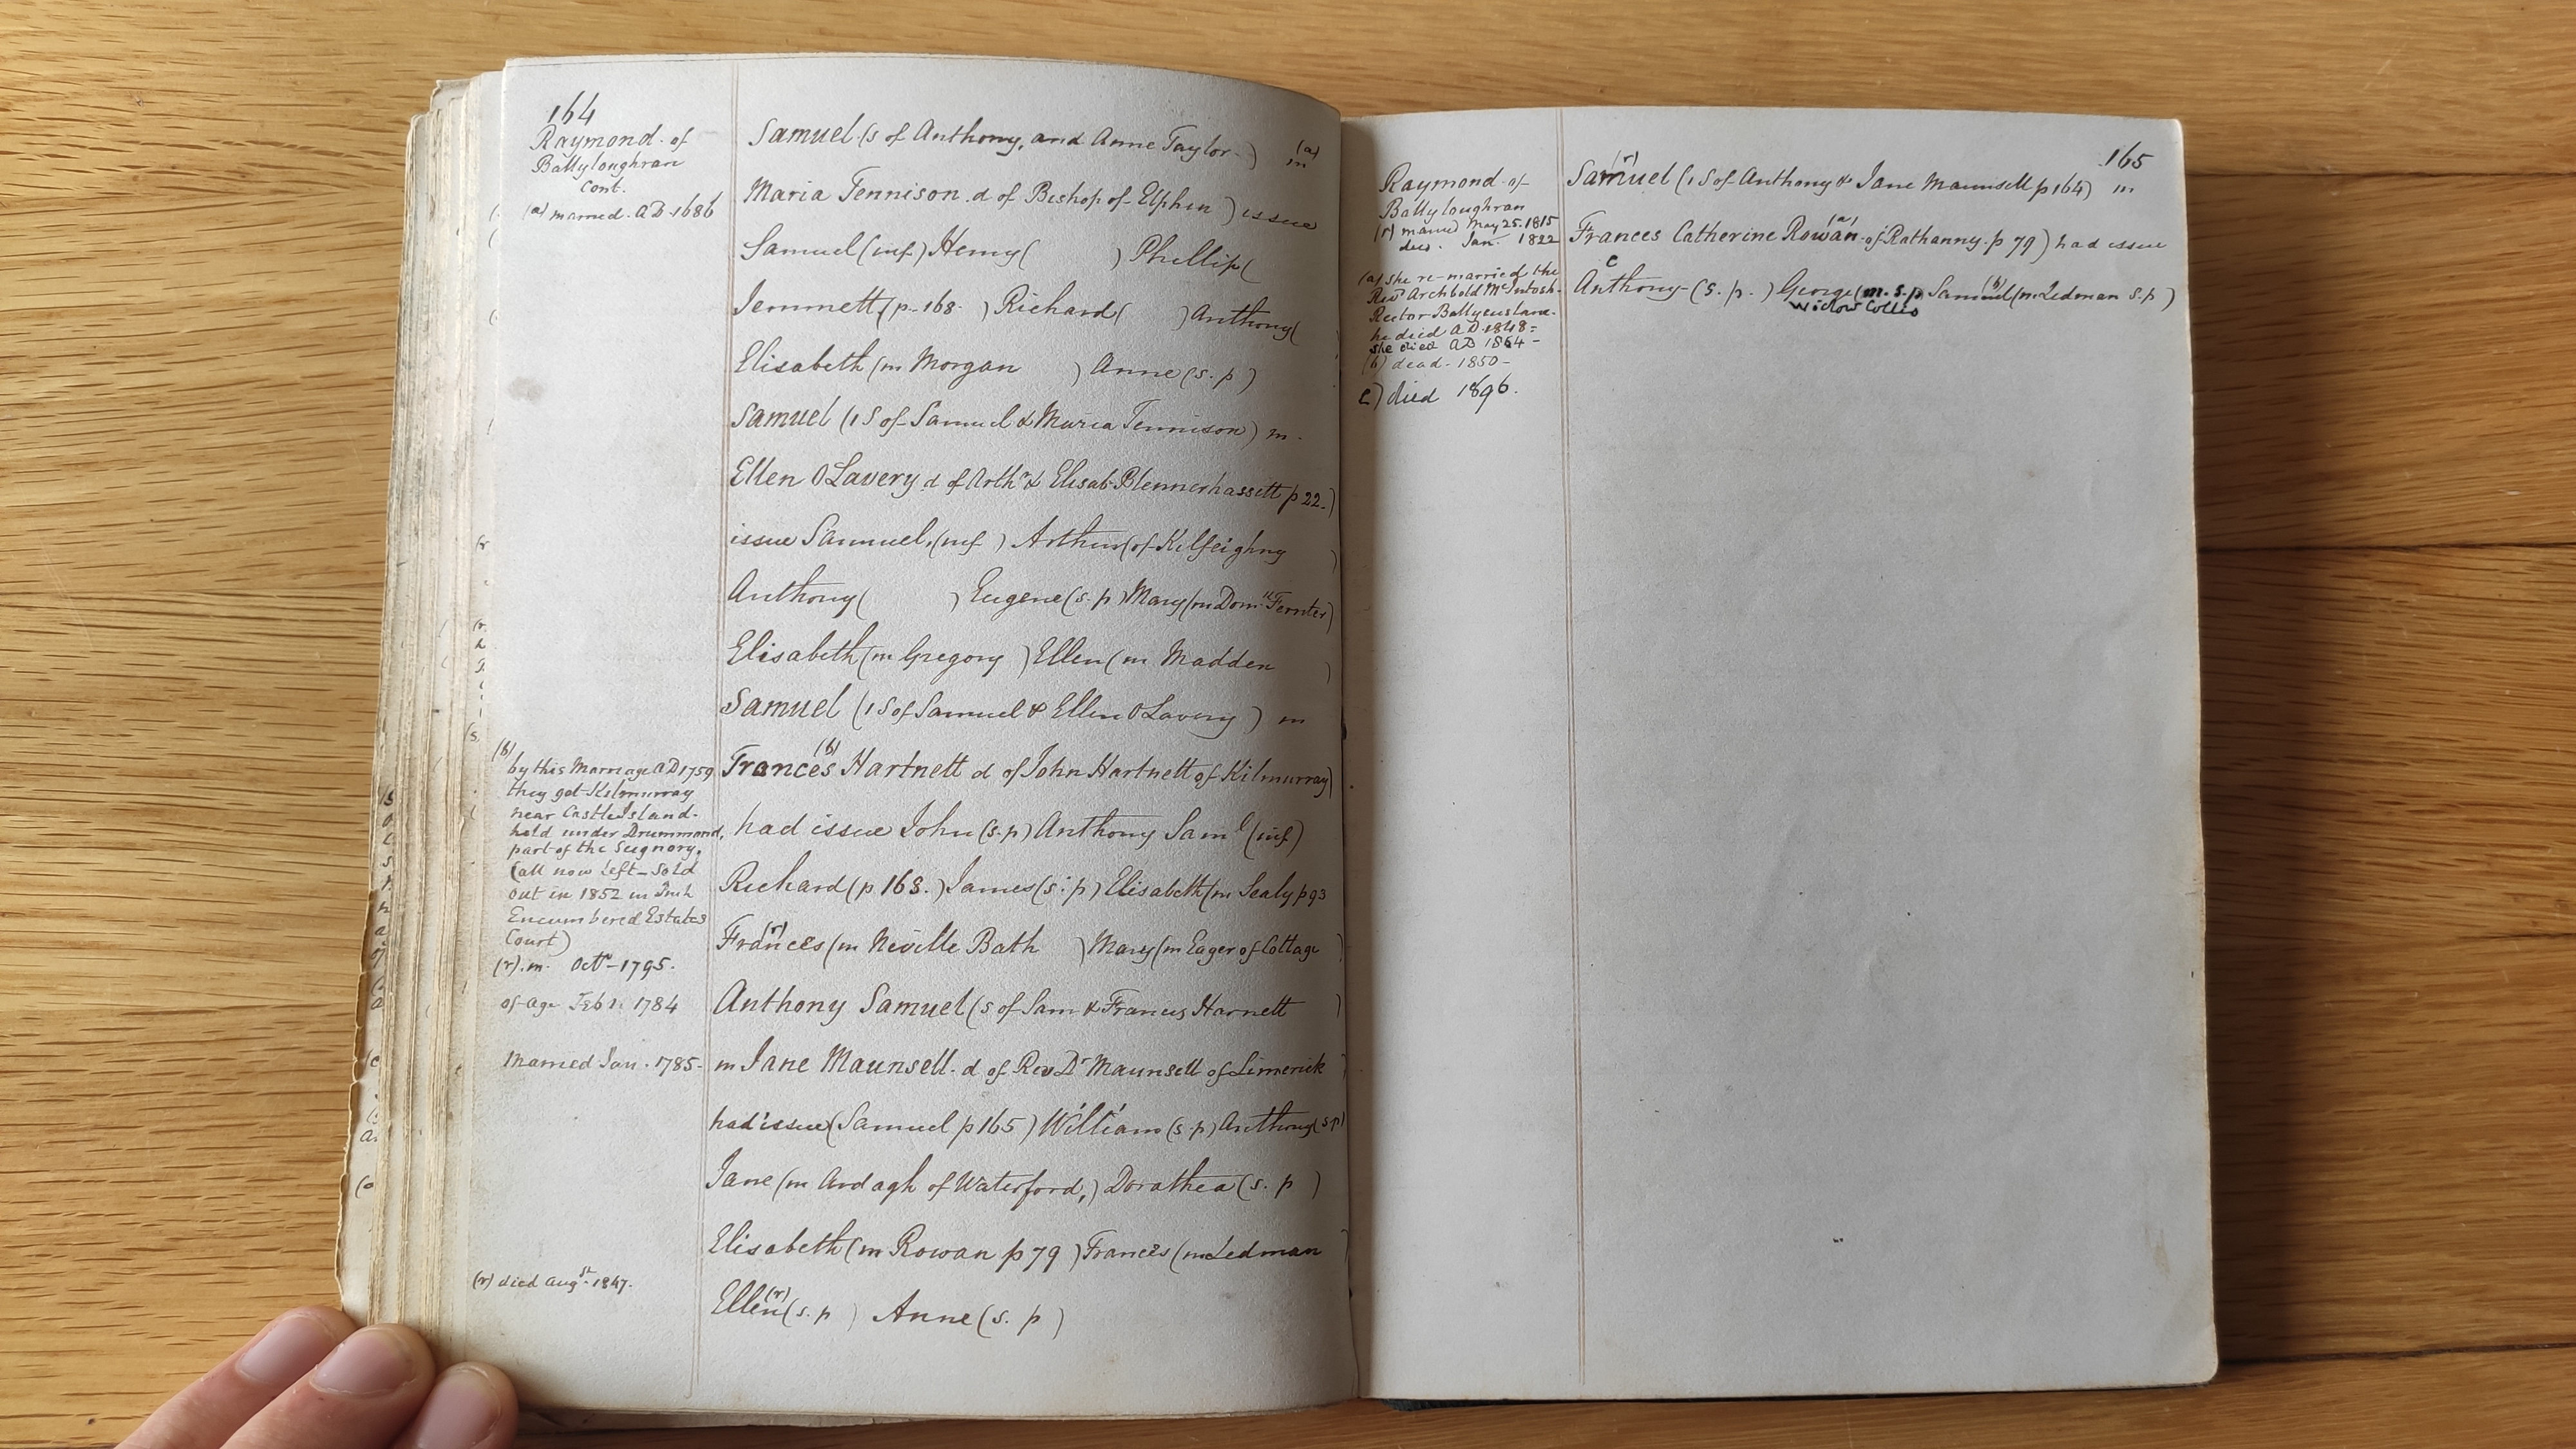 164
Raymond of
Ballyloughran
Cont.
(a) married. AD. 1686
Samuel (s of Anthony, and Anne Taylor) (a) m
Maria Tennison d of Bishop of Elphin) issue
Samuel (inf) Henry ( ) Phillip (
Jemmett (p. 168. ) Richard ( ) Anthony (
Elisabeth (m Morgan ) Anne (s. p)
Samuel (1 S of Samuel & Maria Tennison) m.
Ellen O Lavery d of Arthr & Elisab Blennerhassett p 22.)
issue Sammuel, (inf ) Arthur (of Kilfeighny )
Anthony ( ) Eugene (s. p) Mary (m Domk Ferriter)
Elisabeth (m Gregory ) Ellen (m Madden )
Samuel (1 S of Samuel & Ellen O Lavery ) m
(b)
by this Marriage AD 1759
they got Kilmurray
near CastleIsland.
held under Drummond,
part of the Seignory.
(all now left – sold
out in 1852 in
Encumbered Estates
Court)
(r). m. Octr – 1795.
of age Feb 1784
Married Jan. 1785.
(r) died Augst. 1847.
Frances (b) Hartnett d of John Hartnett of Kilmurray)
had issue John (s. p) Anthony Saml (inf)
Richard (p 168.) James (s. p) Elisabeth (m Sealy p 93
Frances (r) (m Neville Bath ) Mary (m Eager of Cottage )
Anthony Samuel (s of Sam & Frances Harnett )
m Jane Maunsell. d of Rev Dr Maunsell of Limerick )
had issue (Samuel p 165) William (s. p) Anthony (s p)
Jane (m Ardagh of Waterford,) Dorathea (s. p )
Elisabeth (m Rowan p 79 ) Frances (m Ledman )
Ellen (r) (s. p ) Anne (s. p )
165
Raymond of
Ballyloughran
(r) married May 25. 1815
died. Jan. 1822
(a) She re-married the
Revd Archbold McIntosh.
Rector
he died AD 1848 =
she died AD 1864 –
(b) dead – 1850 –
c) died 1896.
Samuel (r) (1 S of Anthony & Jane Maunsell p 164) m
Frances Catherine Rowan (a) of Rathanny. p 79) had issue
c
Anthony – (s. p. ) George (m. s. p. Samuel (b) (m. Ledman s. p )
widow Collis